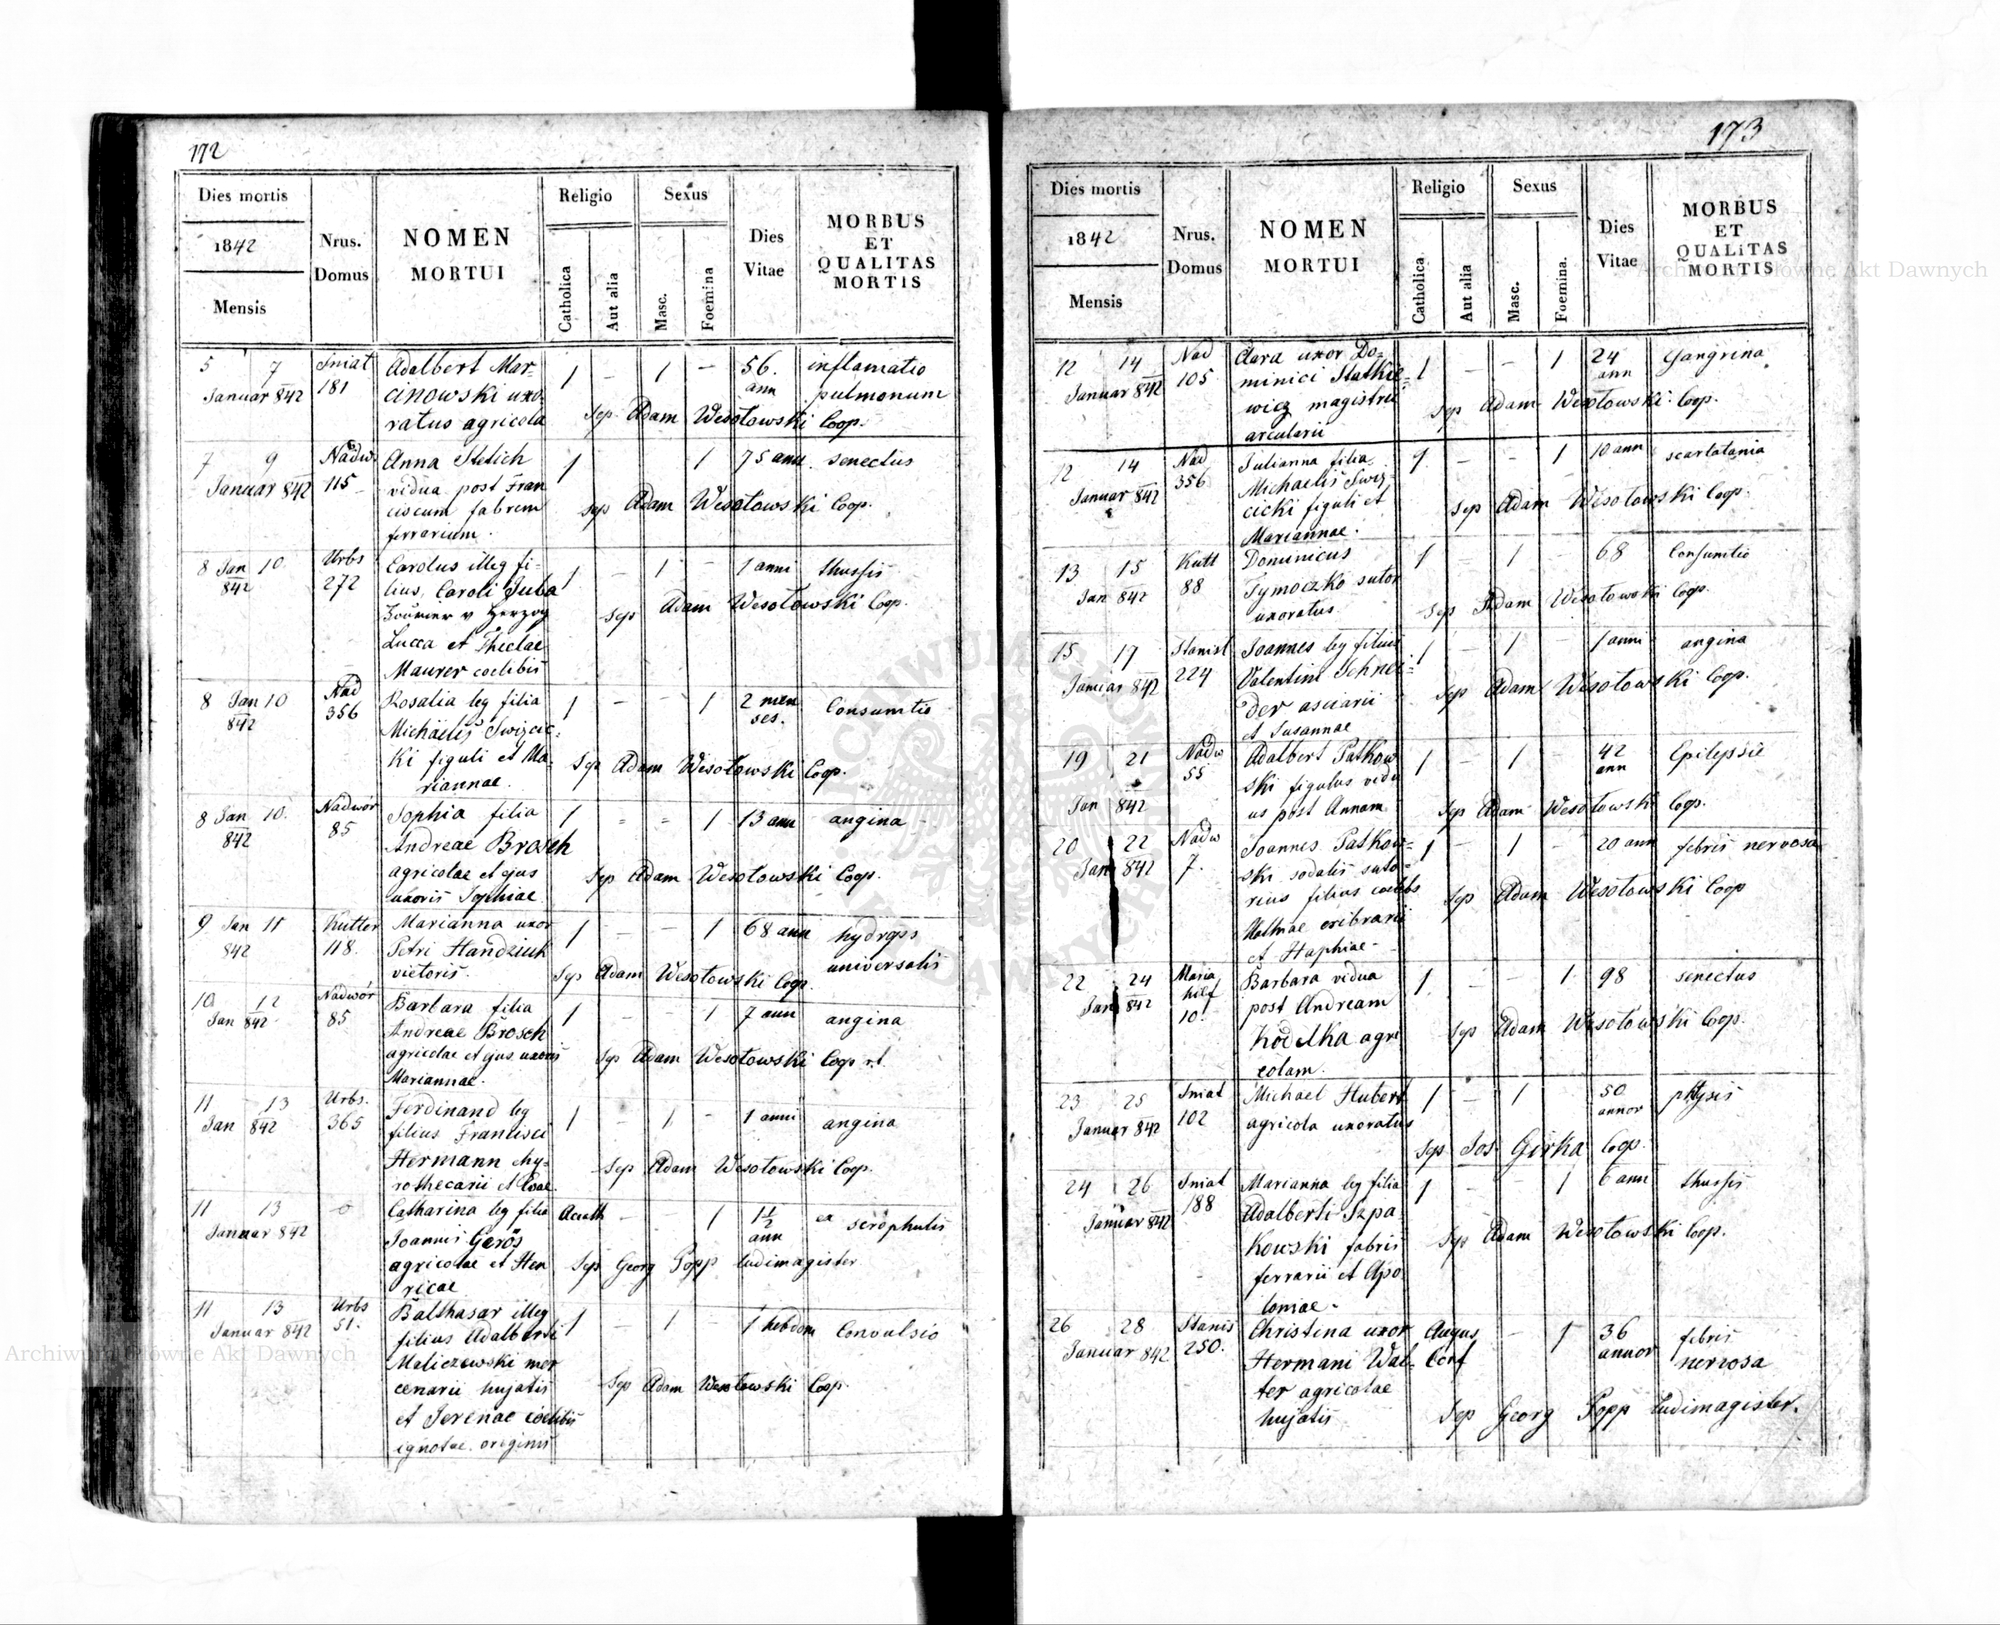 172
Dies mortis
1842
Mensis
Nrus.
Domus
NOMEN
MORTUI
Religio
Catholica
Aut alia
Sexus
Masc.
Foemina
Dies
Vitae
MORBUS
ET
QUALITAS
MORTIS
5 7 Sniat Adalbert Mar- 1 – 1 – 56. inflamatio
Januar 842 181 cinowski uxo- ann pulmonum
ratus agricola Sep. Adam Wesołowski Coop.
7 9 Nadw. Anna 1 1 75 ann senectus
Januar 842 115 vidua post Fran
ciscum fabrum Sep Adam Wesołowski Coop.
ferrarium.
8 Jan 10 Urbs Carolus illeg fi- 1 – 1 – 1 anni thussis
842 272 lius Caroli Juba
v Herzog Sep Adam Wesołowski Coop.
Lucca et Theclae
Maurer coelibis
8 Jan 10 Nad Rosalia leg filia 1 – – 1 2 men Consumtio
842 356 Michaelis Swizcic- ses.
ki figuli et Ma- Sep Adam Wesołowski Coop.
riannae.
8 Jan 10. Nadwór Sophia filia 1 = = 1 13 ann angina –
842 85 Andreae Brosch
agricolae et ejus Sep Adam Wesołowski Coop.
uxoris Sophiae
9 Jan 11 Kutter Marianna uxor 1 – – 1 68 ann hydrops
842 118. Petri Handziuk universalis
vietoris. Sep Adam Wesołowski Coop.
10 12 Nadwór Barbara filia 1 – – 1 7 ann angina
Jan 842 85 Andreae Brosch
agricolae et ejus uxoris Sep Adam Wesołowski Coop r.l.
Mariannae.
11 13 Urbs. Ferdinand leg 1 – 1 – 1 anni angina
Jan 842 365 filius Francisci
Hermann chy-
rothecarii et Evae. Sep Adam Wesołowski Coop.
11 13 o Catharina leg filia Acath – – 1 1 1/2 ex scrophulis
Januar 842 Joannis Gerös ann
agricolae et Hen Sep Georg Popp ludimagister
ricae
11 13 Urbs Balthasar illeg 1 – 1 – 1 hebdom Convulsio
Januar 842 51. filius Adalberti
Maliczewski mer
cenarii hujatis Sep Adam Wesołowski Coop.
et Serenae coelibis
ignotae originis
173
Dies mortis
1842
Mensis
Nrus.
Domus
NOMEN
MORTUI
Religio
Catholica
Aut alia
Sexus
Masc.
Foemina.
Dies
Vitae
MORBUS
ET
QUALITAS
MORTIS
12 14 Nad Clara uxor Do- 1 – – 1 24 Gangrina
Januar 842 105 minici Statkie- ann
wicz magistri Sep Adam Wesołowski Coop.
arcularii
12 14 Nad Julianna filia 1 – – 1 10 ann scarlatania
Januar 842 356 Michaelis Swiz
cicki figuli et Sep Adam Wesołowski Coop.
Mariannae.
13 15 Kutt Dominicus 1 1 – 68 Consumtio
Jan 842 88 Tymoczko sutor
uxoratus Sep Adam Wesołowski Coop.
15 17 Stanisl Joannes leg filius 1 – 1 1 anni angina
Januar 842 224 Valentini Schnei-
der asciarii Sep Adam Wesołowski Coop.
et Susannae
19 21 Nadw Adalbert Patkow 1 – 1 – 42 Epilepsie
55 ski figulus vidu ann
Jan 842 us post Annam Sep Adam Wesołowski Coop.
20 22 Nadw Joannes Patkow- 1 – 1 – 20 ann febris nervosa
Jan 842 7. ski sodalis suto-
rius filius coelibs Sep Adam Wesołowski Coop
Mathiae cribrarii
et Sophiae –
22 24 Maria Barbara vidua 1 – – 1 98 senectus
Jan 842 hilf post Andream
10 Kodelka agri Sep Adam Wesołowski Coop.
colam.
23 25 Sniat Michael Hubert 1 – 1 50 phtysis
Januar 842 102 agricola uxoratus annor
Sep Jos Girka Coop.
24 26 Sniat Marianna leg filia 1 – – 1 6 ann thussis
Januar 842 188 Adalberti Szpa
kowski fabris Sep Adam Wesołowski Coop.
ferrarii et Apo
loniae.
26 28 Stanis Christina uxor Augus – 1 36 febris
Januar 842 250. Hermani Wal- Conf annor nervosa
ter agricolae
hujatis Sep Georg Popp ludimagister.
Archiwum Główne Akt Dawnych
Archiwum Główne Akt Dawnych
ARCHIWUM GŁÓWNE AKT DAWNYCH